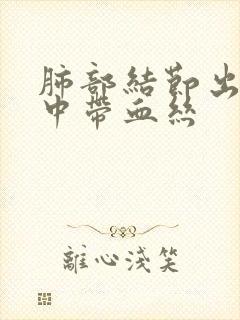 肺部結節出
中帶血絲
離心淺笑